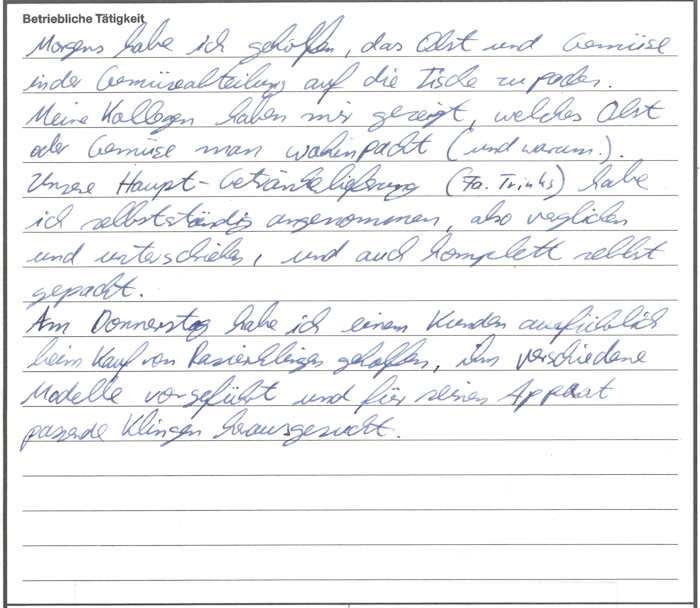 Betriebliche Tätigkeit
Morgens habe ich geholfen, das Obst und Gemüse
in der Gemüseabteilung auf die Tische zu packen.
Meine Kollegen haben mir gezeigt, welches Obst
oder Gemüse man wohinpackt (und warum.).
Unsere Haupt-Getränkelieferung (Fa. Trinks) habe
ich selbstständig angenommen, also verglichen
und unterschrieben, und auch komplett selbst
gepackt.
Am Donnerstag habe ich einem Kunden ausführlich
beim Kauf von Rasierklingen geholfen, ihm verschiedene
Modelle vorgeführt und für seinen Apparat
passende Klingen herausgesucht.